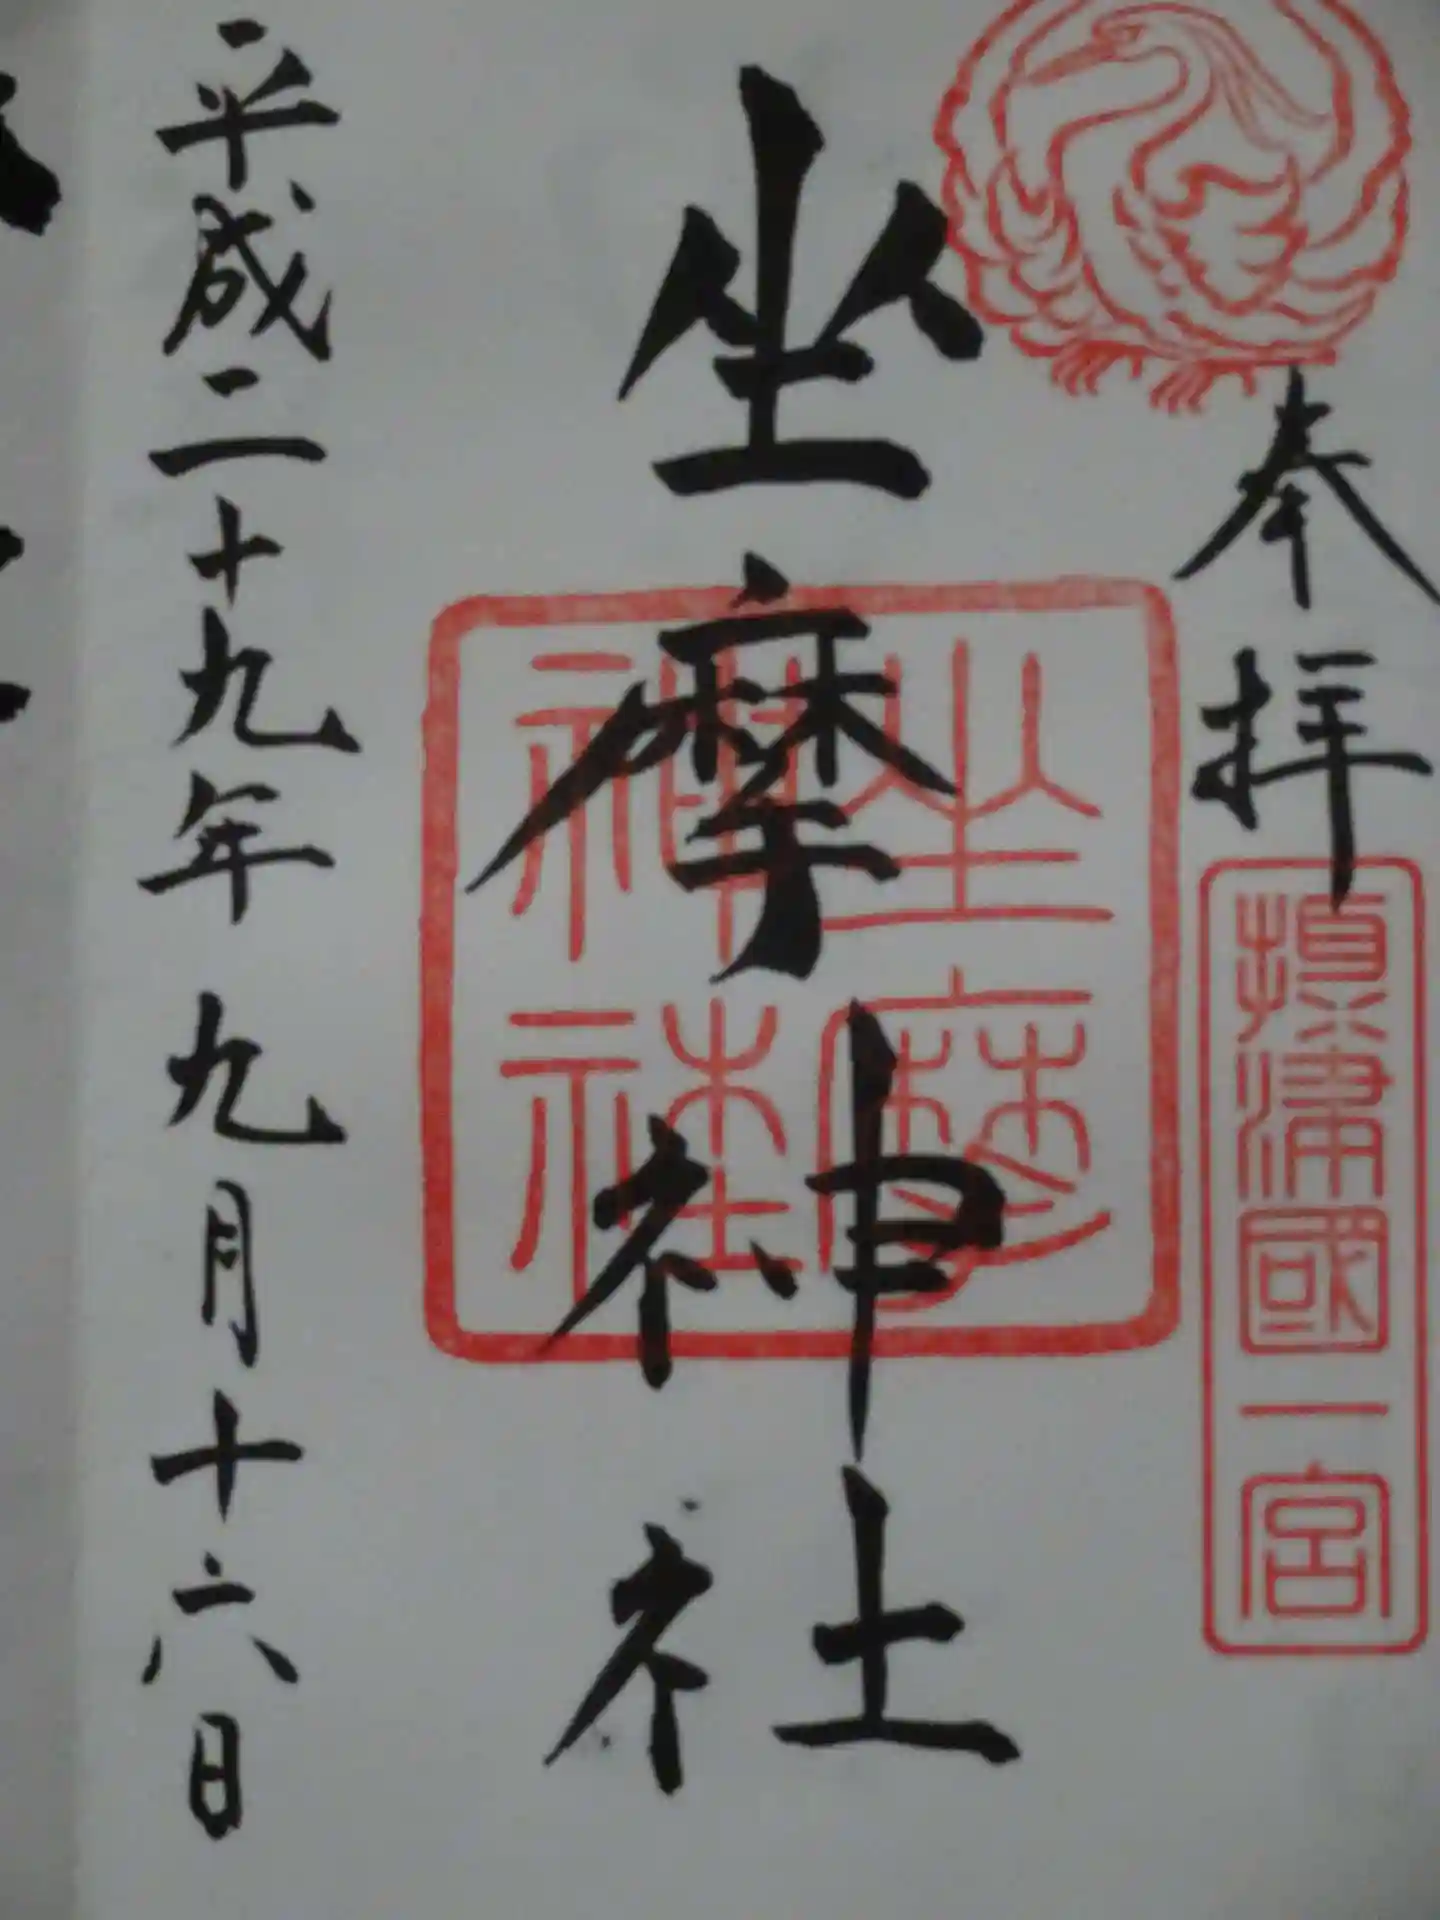 奉拝
摂津國一宮
坐摩神社
坐摩神社
平成二十九年九月十六日